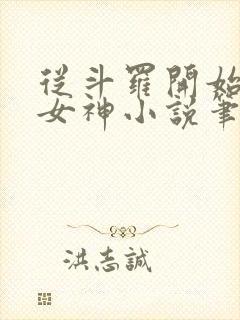 從斗羅開始
女神小說筆
洪志誠